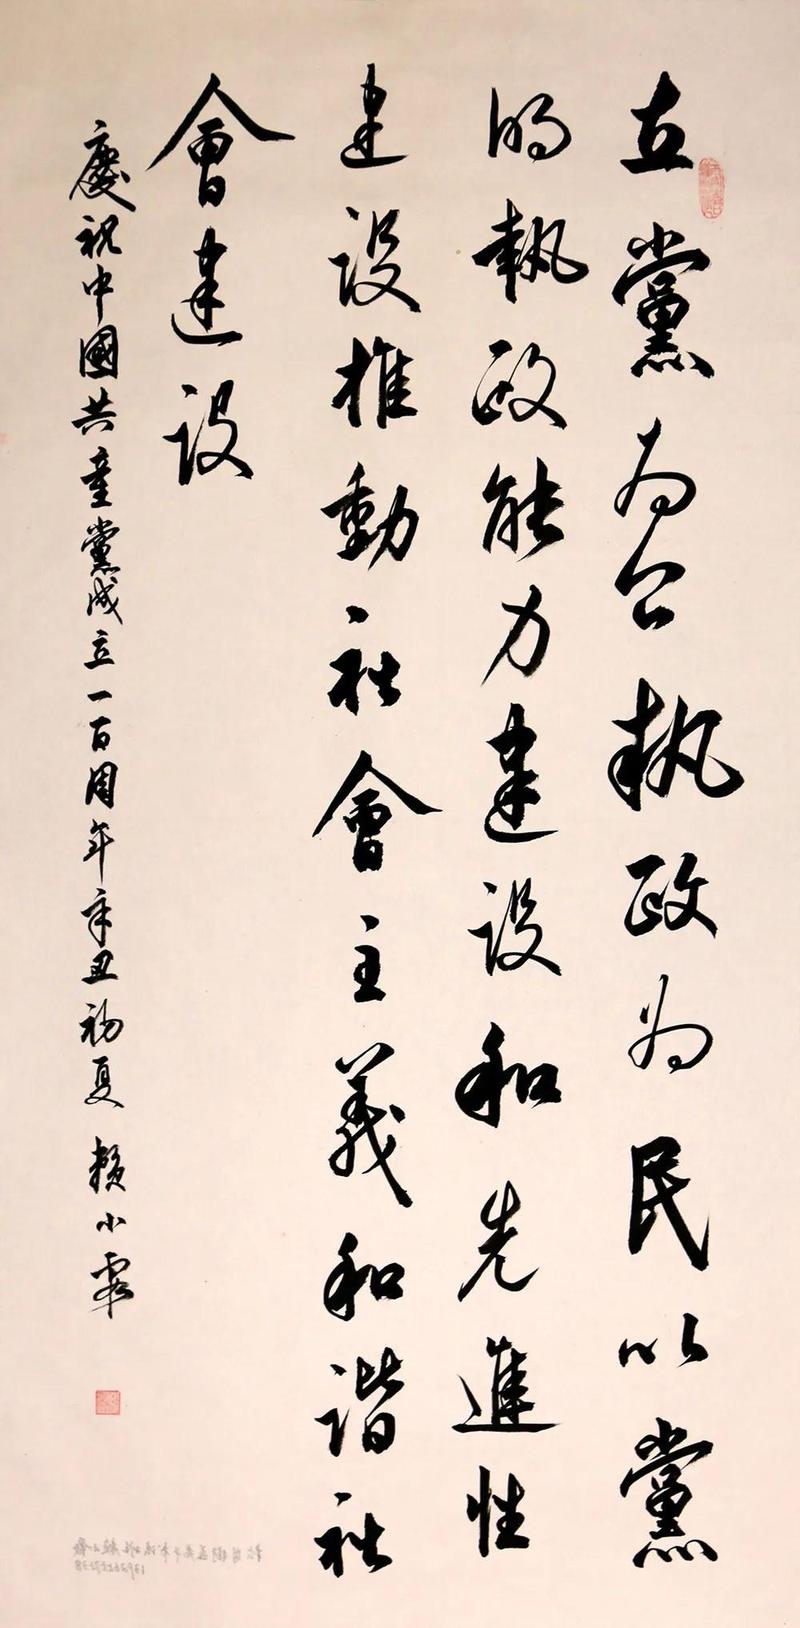 立黨为公執政为民以黨
的執政能力建设和先進性
建设推動社會主義和谐社
會建设
慶祝中國共產黨成立一百周年辛丑初夏 賴小霖